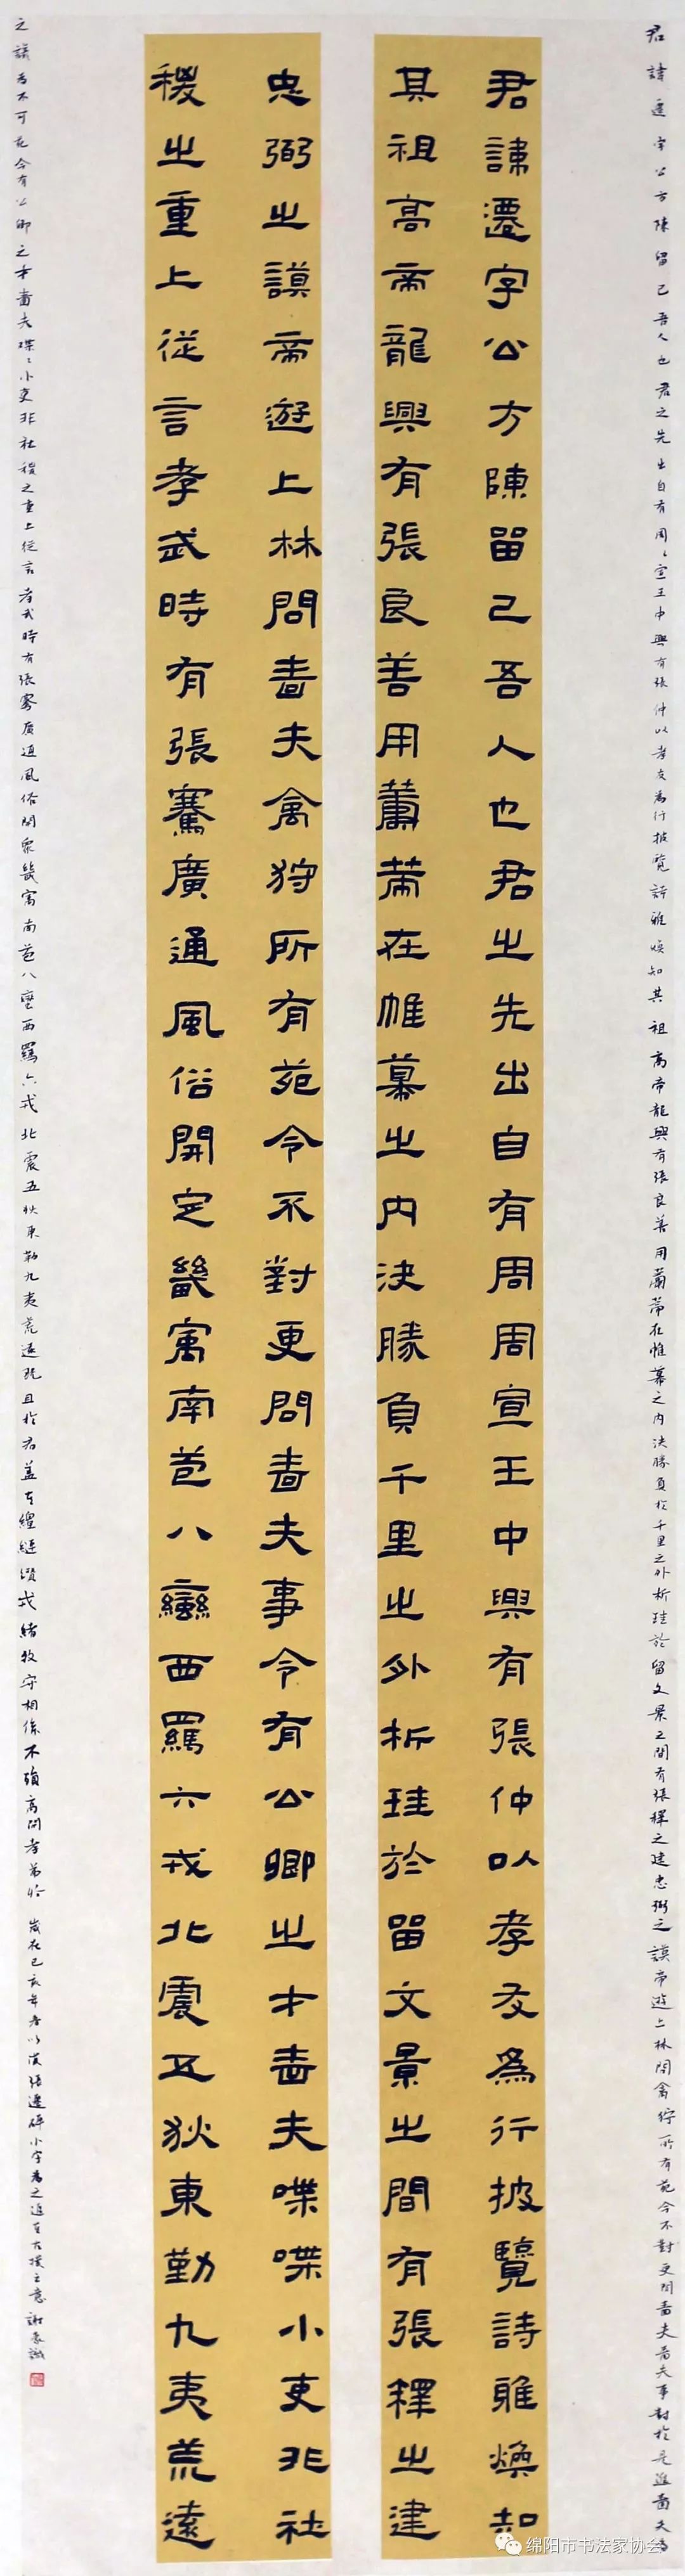 君諱遷字公方陳留己吾人也君之先出自有周〻宣王中興有張仲以孝友為行披覽詩雅煥知其祖高帝龍興有張良善用蕭䓣在帷幕之內決勝負於千里之外析珪於留文景之間有張釋之建忠弼之謨帝遊上林問禽狩所有苑令不對更問嗇夫嗇夫事對於是進嗇夫為
君諱遷字公方陳留己吾人也君之先出自有周周宣王中興有張仲以孝友為行披覽詩雅煥知
其祖高帝龍興有張良善用蕭䓣在帷幕之內決勝負千里之外析珪於留文景之間有張釋之建
忠弼之謨帝遊上林問嗇夫禽狩所有苑令不對更問嗇夫事令有公卿之才嗇夫喋喋小吏非社
稷之重上從言孝武時有張騫廣通風俗開定畿寓南苞八蠻西羈六戎北震五狄東勤九夷荒遠
之議為不可苑令有公卿之才嗇夫喋〻小吏非社稷之重上從言孝武時有張騫廣通風俗開定畿寓南苞八蠻西羈六戎北震五狄東勒九夷荒遠既且於君蓋其纏縺纘戎緒牧守相係不殞高問孝弟於 歲在己亥年春以漢張遷碑小字為之追其古樸之意 謝 識
绵阳市书法家协会